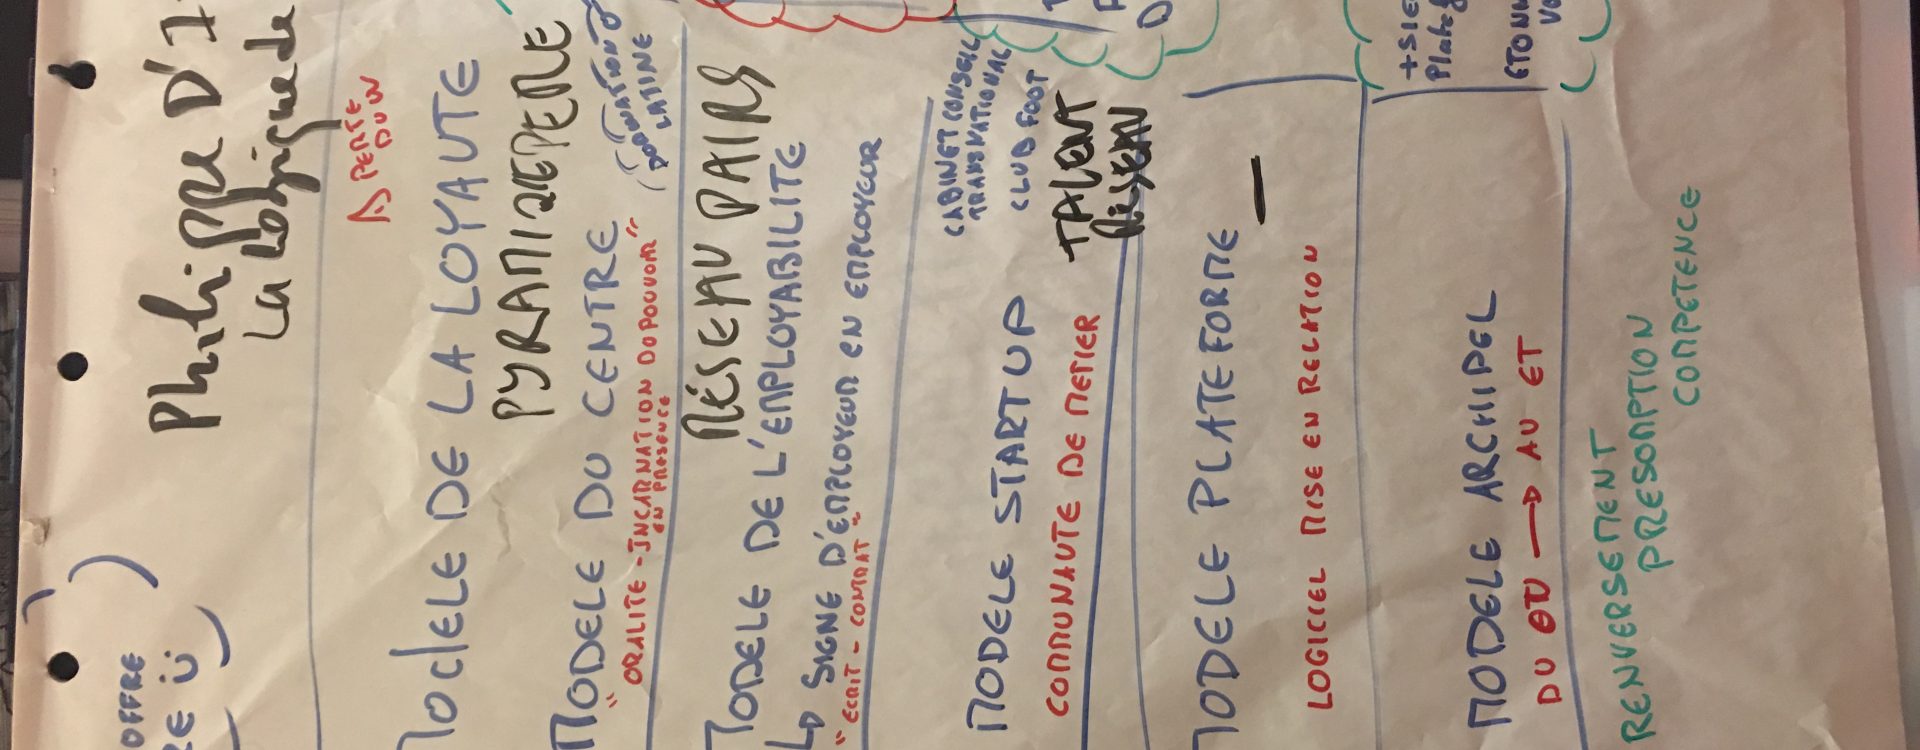 OFFRE
Philippe D'I
La Logique de
PERTE
DU
MOdELE DE LA LOYAUTE
PYRAMIDE PERE
MODELE DU CENTRE
DOMINATION
LATINE
"ORALITE - INCARNATION DU POUVOIR"
EN PRESENCE
RÉSEAU PAIRS
MODELE DE L'EMPLOYABILITE
SIGNE D'EMPLOYEUR EN EMPLOYEUR
"ECRIT - CONTRAT"
CABINET CONSEIL
TRANSNATIONAL
CLUB FOOT
MODELE STARTUP
TALENT
RÉSEAU
COMMUNAUTE DE METIER
MODELE PLATEFORME
LOGICIEL MISE EN RELATION
MODELE ARCHIPEL
DU OU → AU ET
RENVERSEMENT
PRESOMPTION
COMPETENCE